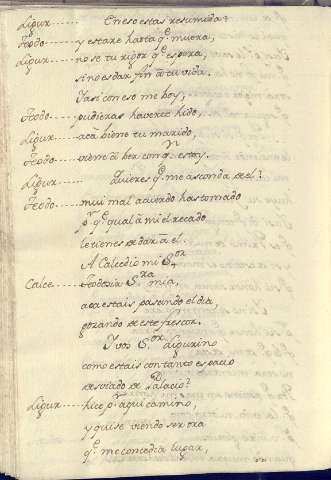 Ligur ---- En eso estas resumida?
Teodo ---- y estare hasta q.e muera,
Ligur ---- no se tu rigor q.e espera,
sino es dar fin a tu vida.
Y asi con eso me boy,
Teodo ---- pudieras haverte hido,
Ligur ---- acà biene tu marido,
Teodo ---- viene à ber con q.n estoy.
Ligur ---- Quieres q.e me asconda de el?
Teodo ---- mui mal acuerdo has tomado
p.r q.e qual a mi el recado
le tienes de dar à el.
A Calcedio mi S.or
Calce ---- Teodosia S.ra mia,
aca estais pasando el dia
gozando de este frescor.
Y vos S.or Ligurino
como estais con tanto espacio
desviado de Palacio?
Ligur ---- hice p.r aqui camino,
y quise viendo ser ora
q.e me concedia lugar,